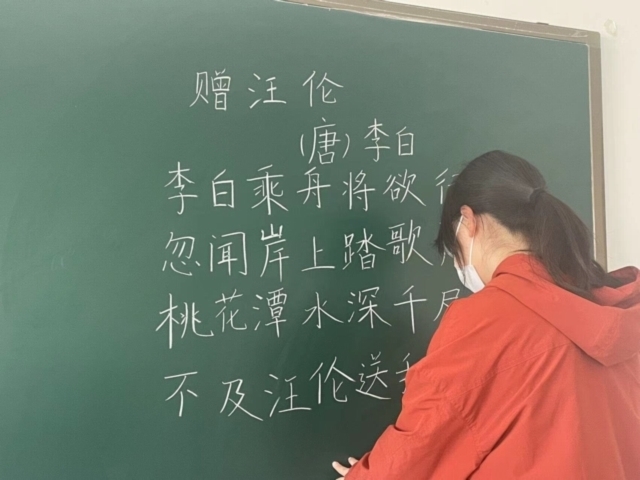 赠汪伦
(唐)李白
李白乘舟将欲行
忽闻岸上踏歌
桃花潭水深千尺
不及汪伦送我